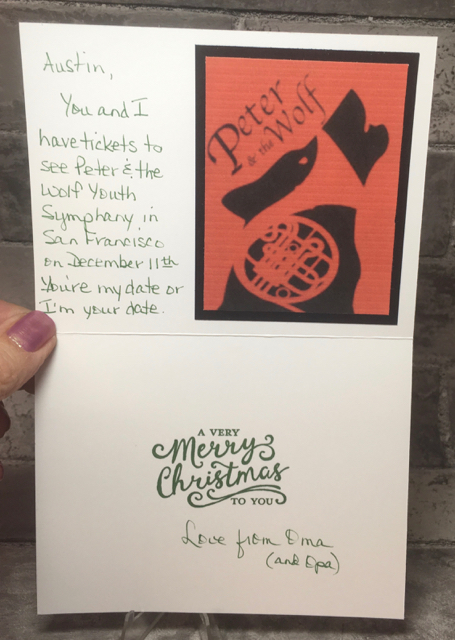 Austin,
You and I
have tickets to
see Peter & the
Wolf Youth
Symphany in
San Francisco
on December 11th
You're my date or
I'm your date.
Peter
& the
Wolf
A VERY
Merry
Christmas
TO YOU
Love from Oma
(and Opa)